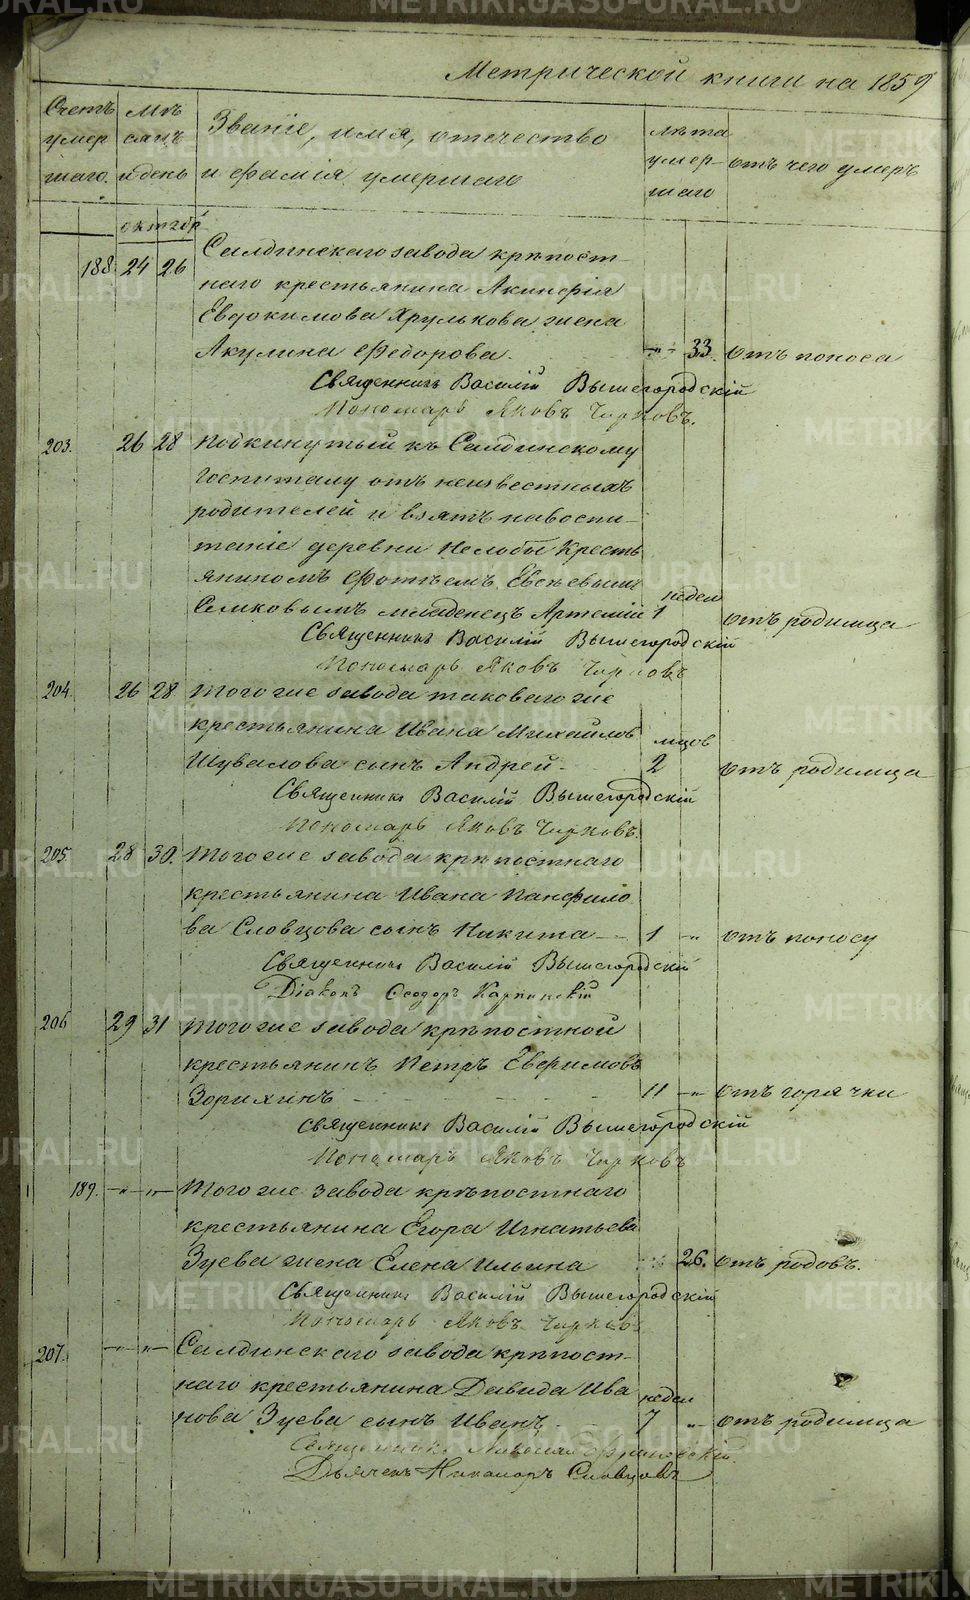 Метрической книги на 1859
Счетъ умер шаго.
Мѣ сяцъ и день
Званіе, имя, отчество
и фамілія умершаго
лѣта умер шаго
отъ чего умеръ
октябр
188. 24 26 Салдинскаго завода крѣпост-
наго крестьянина Акинфія
Евдокимова Хрулькова жена
Акулина Федорова. 33. отъ поноса
Священникъ Василій Вышегородскій
Пономарь Яковъ Чирковъ.
203. 26 28 Подкинутый къ Салдинскому
госпиталу отъ неизвестныхъ
родителей и взятъ навоспи-
таніе деревни Нелобы Кресть
яниномъ Фотѣемъ Евсѣевымъ недел
Семковымъ младенецъ Артемій 1 отъ родимца
Священникъ Василій Вышегородскій
Пономарь Яковъ Чирковъ
204. 26 28 Того же завода таковаго же
крестьянина Ивана Михайлов мцов
Шувалова сынъ Андрей 2 отъ родимца
Священникъ Василій Вышегородскій
Пономарь Яковъ Чирковъ.
205. 28 30. Того же завода крѣпостнаго
крестьянина Ивана Панфило
ва Словцова сынъ Никита 1 " отъ поносу
Священникъ Василій Вышегородскій
Діаконъ Феодоръ Карпинскій
206 29 31 Того же завода крѣпостной
крестьянинъ Петръ Еверимовъ
Зорихинъ 11 " отъ горячки
Священникъ Василій Вышегородскій
Пономарь Яковъ Чирковъ
189. " " Того же завода крѣпостнаго
крестьянина Егора Игнатьева
Зуева жена Елена Ильина 26. отъ родовъ.
Священникъ Василій Вышегородскій
Пономарь Яковъ Чирковъ
207. " " Салдинскаго завода крѣпост-
наго крестьянина Давида Ива недел
нова Зуева сынъ Иванъ 7 " отъ родимца
Священникъ
Дьячекъ Никаноръ Словцовъ
METRIKI.GASO-URAL.RU